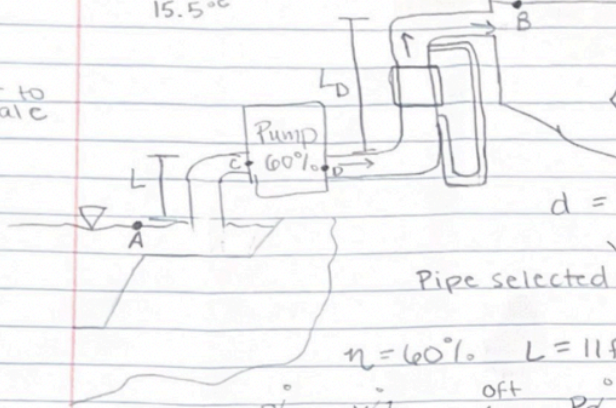 15.5°C
B
to
L_D
Pump
C 60% D
L
A
d =
Pipe selected
η = 60% L = 11f
off